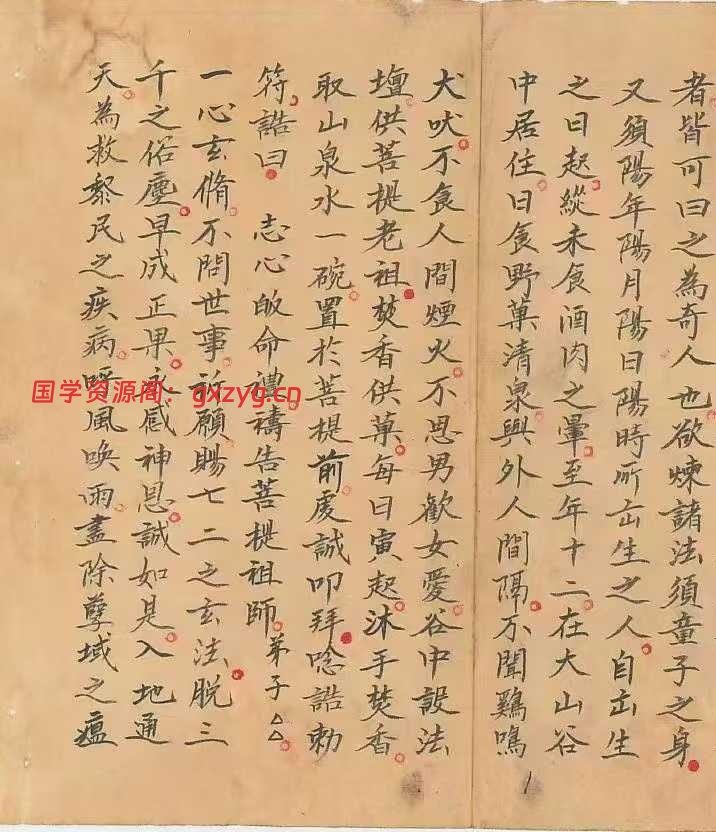 者皆可曰之為奇人也欲煉諸法須童子之身
又須陽年陽月陽日陽時所出生之人自出生
之日起縱未食酒肉之暈至年十二在大山谷
中居住日食野菓清泉與外人間隔不聞鷄鳴
犬吠不食人間煙火不思男歡女愛谷中設法
壇供菩提老祖焚香供菓每日寅起沐手焚香
取山泉水一碗置於菩提前虔誠叩拜唸誥勅
符誥曰 志心皈命禮禱告菩提祖師弟子△△
一心玄脩不問世事祈願賜七二之玄法脫三
千之俗塵早成正果感神恩誠如是入地通
天為救黎民之疾病呼風喚雨盡除孽域之瘟
国学资源阁：gxzyg.cn